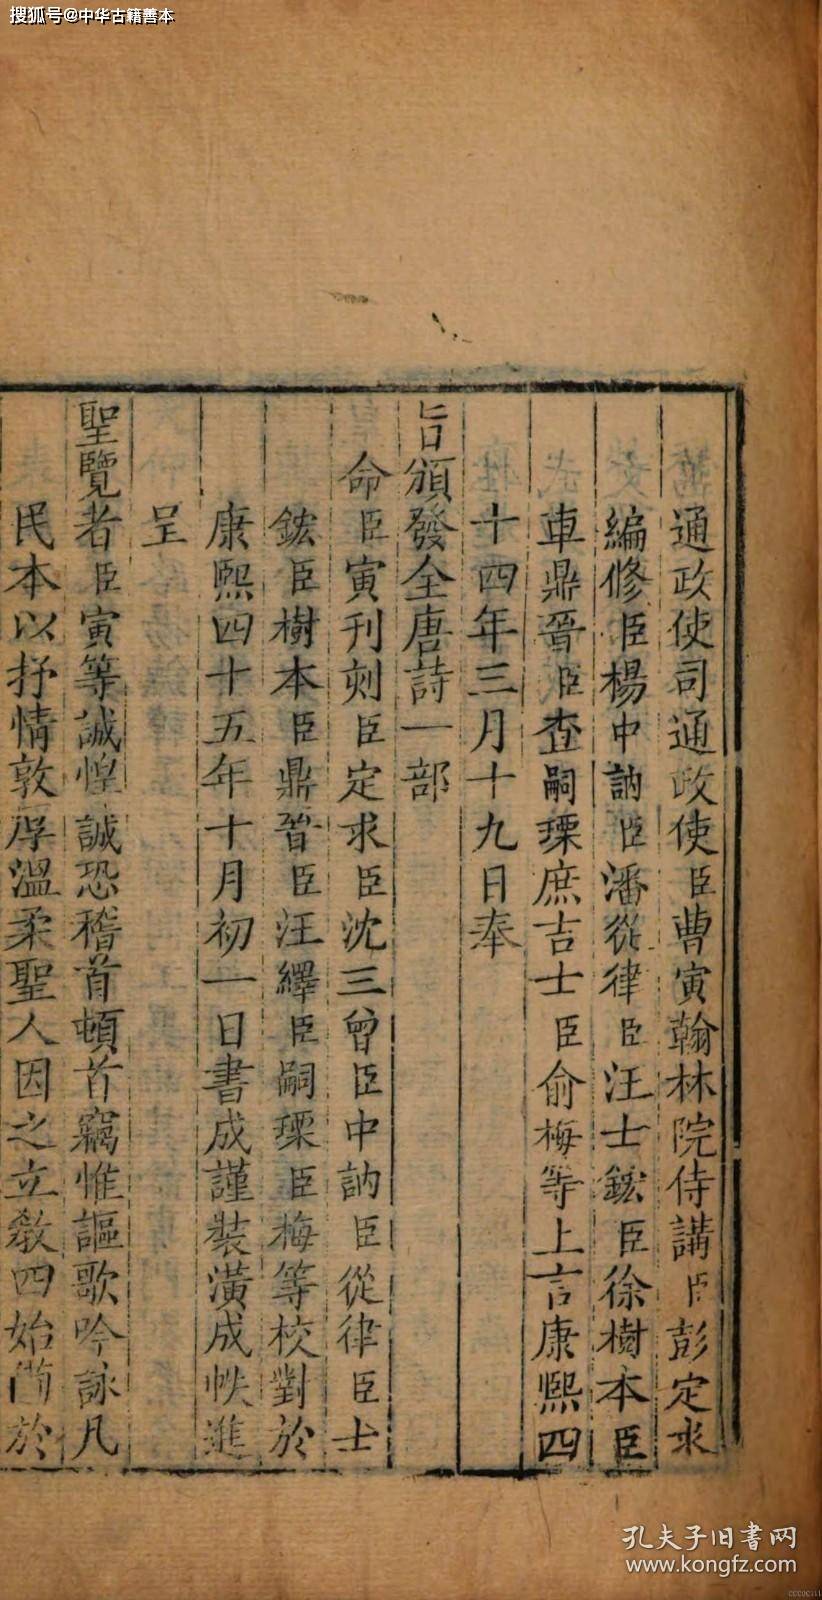 搜狐号@中华古籍善本
通政使司通政使臣曹寅翰林院侍講臣彭定求
編修臣楊中訥臣潘從律臣汪士鋐臣徐樹本臣
車鼎晉臣查嗣瑮庶吉士臣俞梅等上言康熙四
十四年三月十九日奉
旨頒發全唐詩一部
命臣寅刊刻臣定求臣沈三曾臣中訥臣從律臣士
鋐臣樹本臣鼎晉臣汪繹臣嗣瑮臣梅等校對於
康熙四十五年十月初一日書成謹裝潢成帙進
呈
聖覽者臣寅等誠惶誠恐稽首頓首竊惟謳歌吟詠凡
民本以抒情敦厚溫柔聖人因之立教四始萌於
孔夫子旧书网
www.kongfz.com